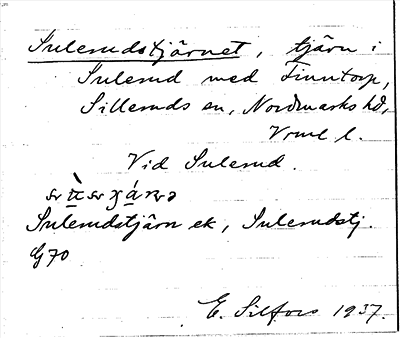 Sulerudstjärnet, tjärn i
Sulerud med Finntorp,
Silleruds sn, Nordmarks hd,
Vrml l.
Vid Sulerud.
Sulerudstjärn ek, Sulerudstj.
G70
E. Silfors 1937.